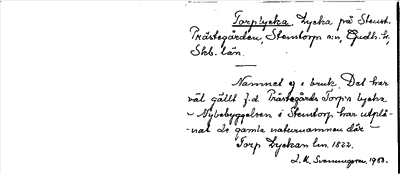 Torplycka. Lycka på Stenst.
Prästegården, Stenstorp s:n, Gudh. h,
Skb. län.
Namnet ej i bruk. Det har
väl gällt f.d. Prästegårds Torp's lycka
- Nybebyggelsen i Stenstorp har utplå-
nat de gamla naturnamnen där -
Torp Lyckan lm. 1822.
L. M. Svenungsson, 1960.